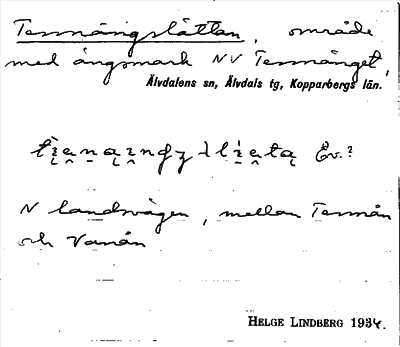 Tennängslåttan, område
med ängsmark NV Tennänget,
Älvdalens sn, Älvdals tg, Kopparbergs län.
Ev.?
N landsvägen, mellan Tennån
och Vanån
HELGE LINDBERG 1934.